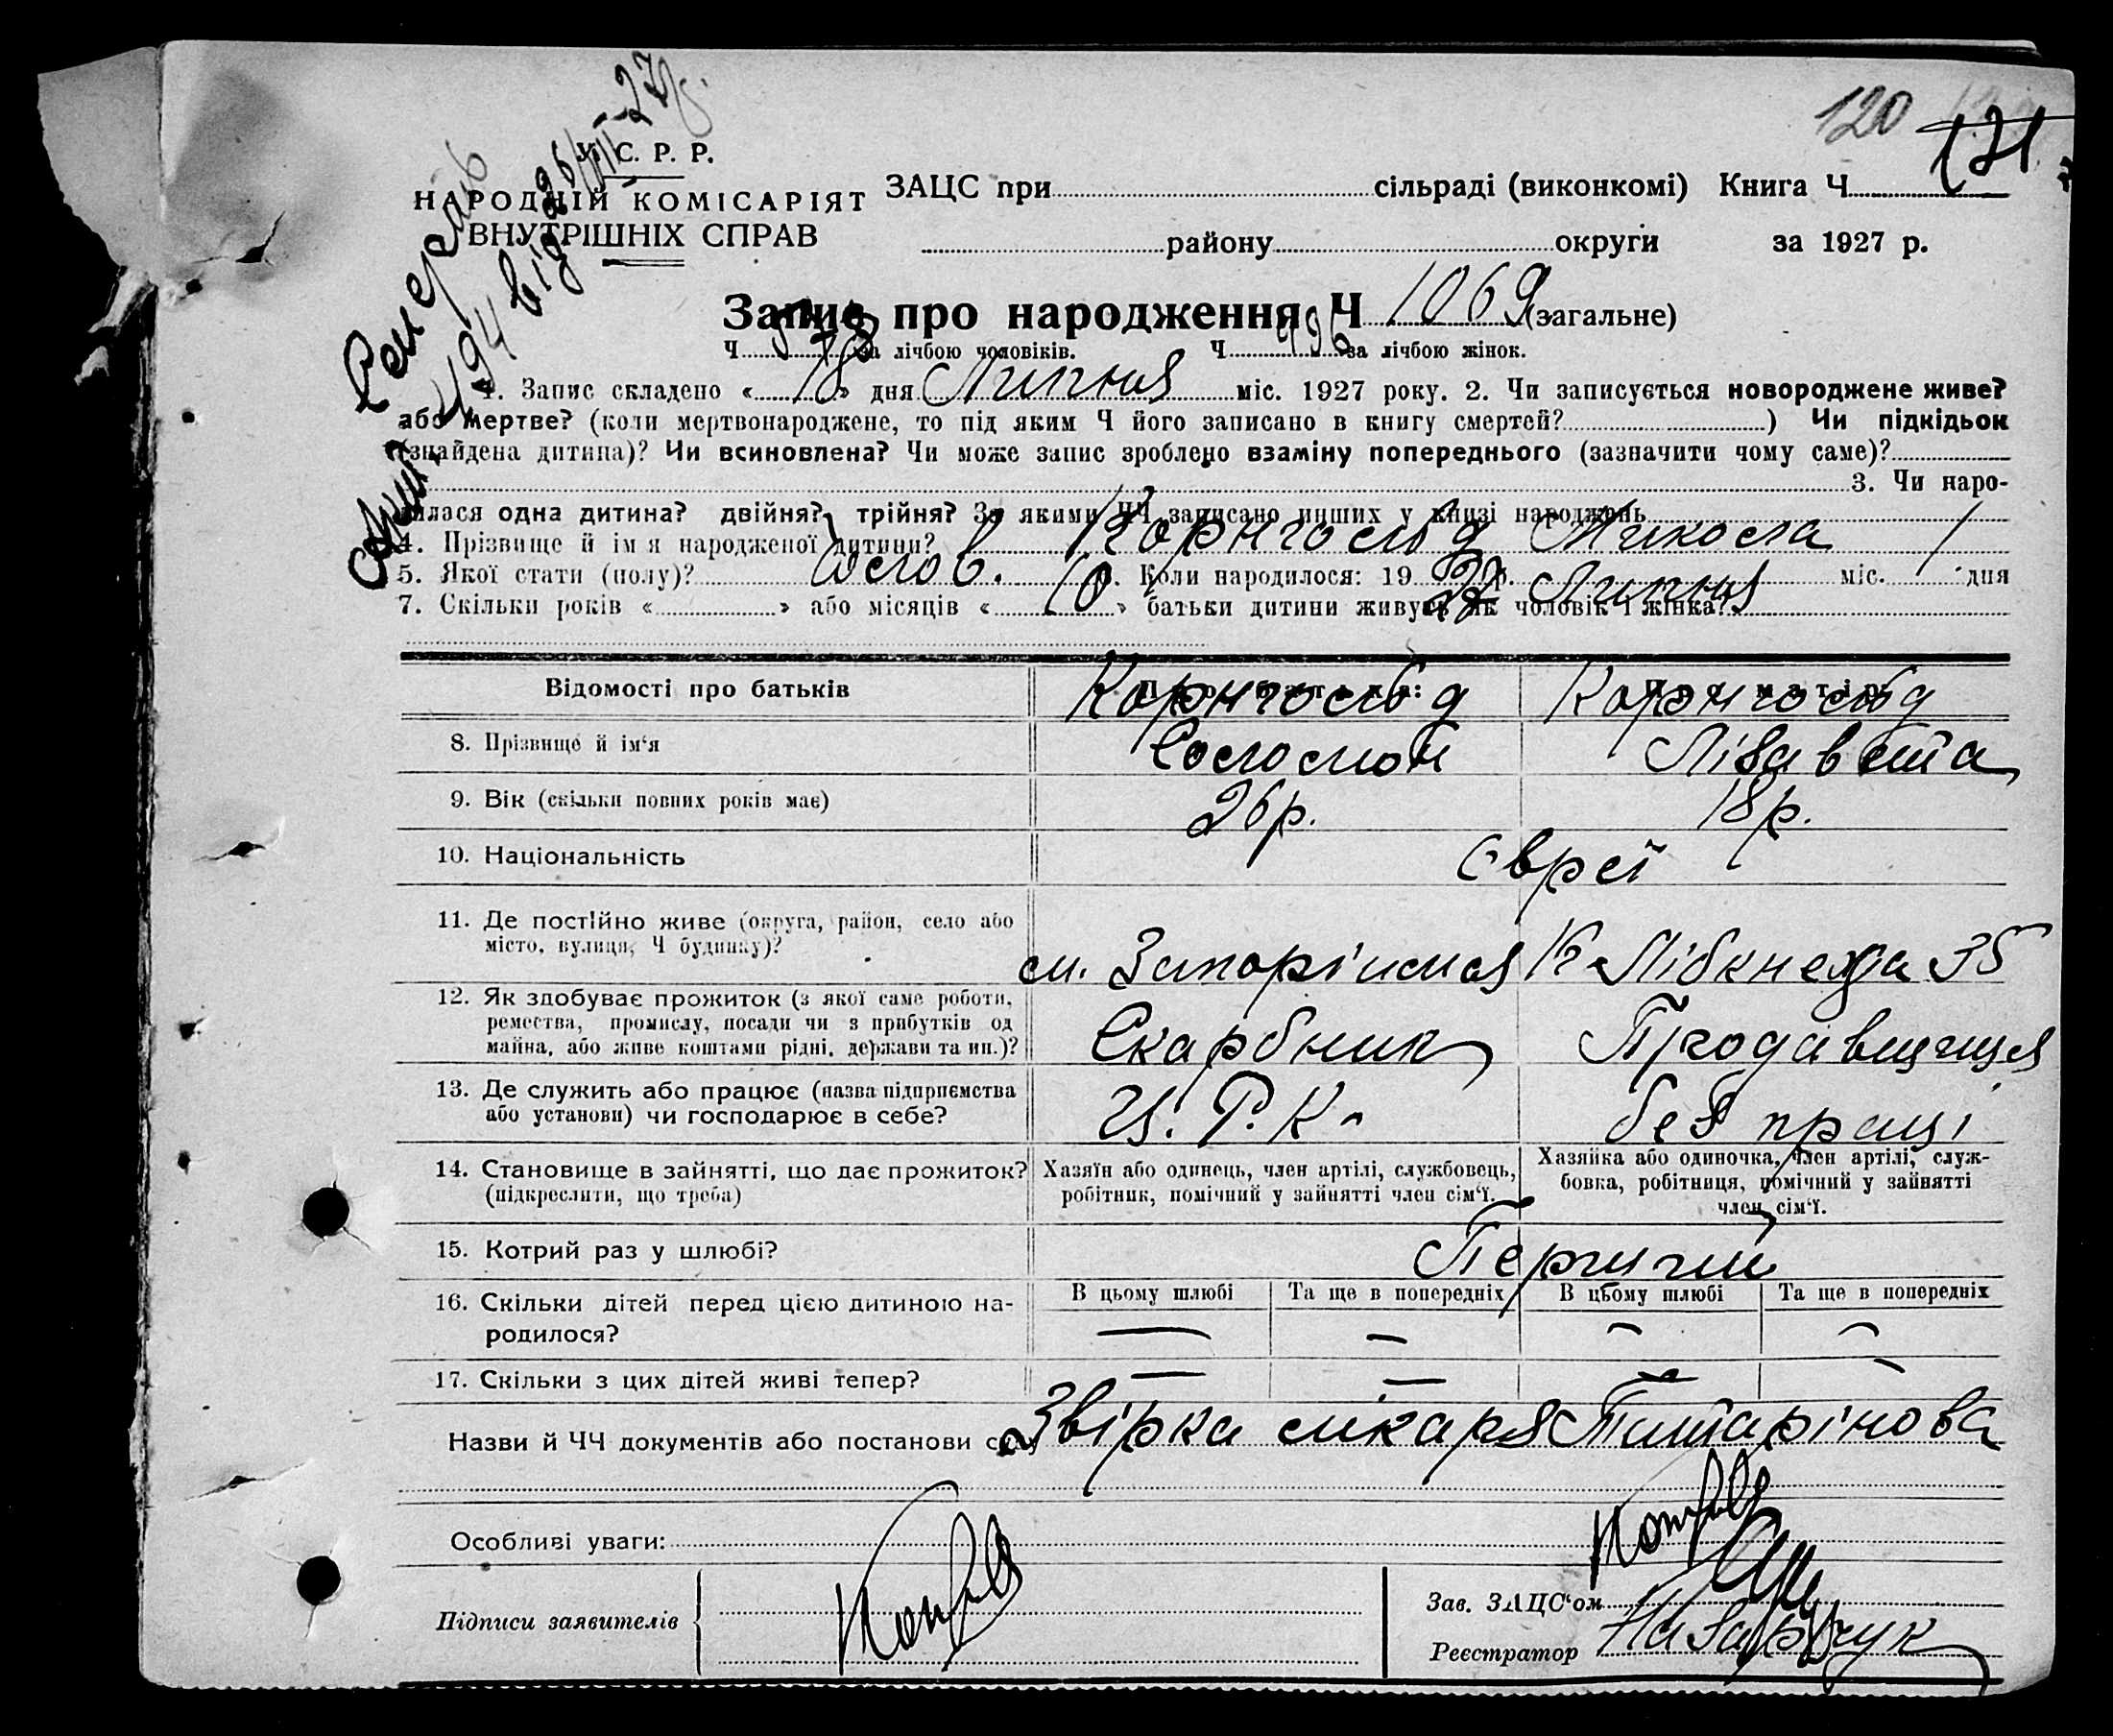 120
121
У. С. Р. Р.
НАРОДНІЙ КОМІСАРІЯТ
ВНУТРІШНІХ СПРАВ
ЗАЦС при сільраді (виконкомі) Книга Ч
району округи за 1927 р.
494 від 26/VII-27р.
Запис про народження Ч 1069 (загальне)
Ч 573 за лічбою чоловіків. Ч 496 за лічбою жінок.
1. Запис складено « 18 » дня Липня міс. 1927 року. 2. Чи записується новороджене живе?
або мертве? (коли мертвонароджене, то під яким Ч його записано в книгу смертей? ) Чи підкідьок
(знайдена дитина)? Чи всиновлена? Чи може запис зроблено взаміну попереднього (зазначити чому саме)?
3. Чи наро-
дилася одна дитина? двійня? трійня? За якими ЧЧ записано инших у книзі народжень
4. Прізвище й ім'я народженої дитини? Корнгольд Микола
5. Якої стати (полу)? Чолов. 6. Коли народилося: 19 27 р. Липня міс. 1 дня
7. Скільки років « » або місяців « 10 » батьки дитини живуть як чоловік і жінка?
Відомості про батьків Про батька: Про матір:
Корнгольд Корнгольд
8. Прізвище й ім'я Соломон Лізавета
9. Вік (скільки повних років має) 26р. 18р.
10. Національність Євреї
11. Де постійно живе (округа, район, село або
місто, вулиця, Ч будинку)? м. Запоріжжя К Лібкнехта 35
12. Як здобуває прожиток (з якої саме роботи,
ремества, промислу, посади чи з прибутків од
майна, або живе коштами рідні, держави та ин.)? Скарбник Продавщиця
13. Де служить або працює (назва підприємства
або установи) чи господарює в себе? Ц. Р. К. без праці
14. Становище в зайнятті, що дає прожиток?
(підкреслити, що треба)
Хазяїн або одинець, член артілі, службовець,
робітник, помічний у зайнятті член сім'ї.
Хазяйка або одиночка, член артілі, служ-
бовка, робітниця, помічний у зайнятті
член сім'ї.
15. Котрий раз у шлюбі? Перший
16. Скільки дітей перед цією дитиною на-
родилося?
В цьому шлюбі Та ще в попередніх В цьому шлюбі Та ще в попередніх
— — — —
17. Скільки з цих дітей живі тепер? — — — —
Назви й ЧЧ документів або постанови суду Звірка лікаря Титарінова
Особливі уваги:
Підписи заявителів
Зав. ЗАЦС'ом
Реєстратор Назарчук